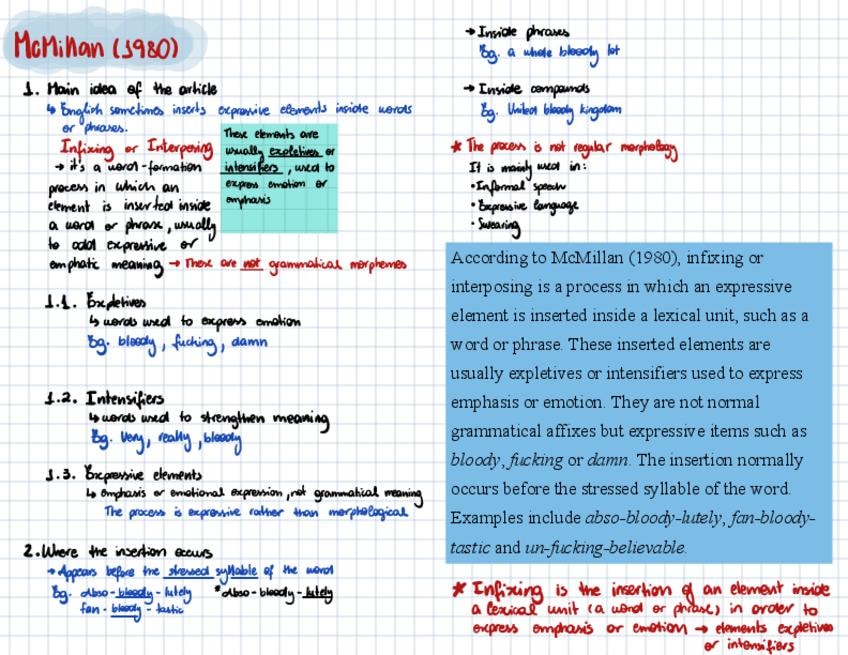 McMillan (1980)
1. Main idea of the article
↳ English sometimes inserts expressive elements inside words
or phrases.
Infixing or Interposing
→ it's a word-formation
process in which an
element is inserted inside
a word or phrase, usually
to add expressive or
emphatic meaning → These are not grammatical morphemes
These elements are
usually expletives or
intensifiers, used to
express emotion or
emphasis
1.1. Expletives
↳ words used to express emotion
Eg. bloody, fucking, damn
1.2. Intensifiers
↳ words used to strengthen meaning
Eg. Very, really, bloody
1.3. Expressive elements
↳ emphasis or emotional expression, not grammatical meaning
The process is expressive rather than morphological
2. Where the insertion occurs
→ Appears before the stressed syllable of the word
Eg. Abso-bloody-lutely *Abso-bloody-lutely
fan-bloody-tastic
→ Inside phrases
Eg. a whole bloody lot
→ Inside compounds
Eg. United bloody kingdom
* The process is not regular morphology
It is mainly used in:
• Informal speech
• Expressive language
• Swearing
According to McMillan (1980), infixing or
interposing is a process in which an expressive
element is inserted inside a lexical unit, such as a
word or phrase. These inserted elements are
usually expletives or intensifiers used to express
emphasis or emotion. They are not normal
grammatical affixes but expressive items such as
bloody, fucking or damn. The insertion normally
occurs before the stressed syllable of the word.
Examples include abso-bloody-lutely, fan-bloody-
tastic and un-fucking-believable.
* Infixing is the insertion of an element inside
a lexical unit (a word or phrase) in order to
express emphasis or emotion → elements expletives
or intensifiers